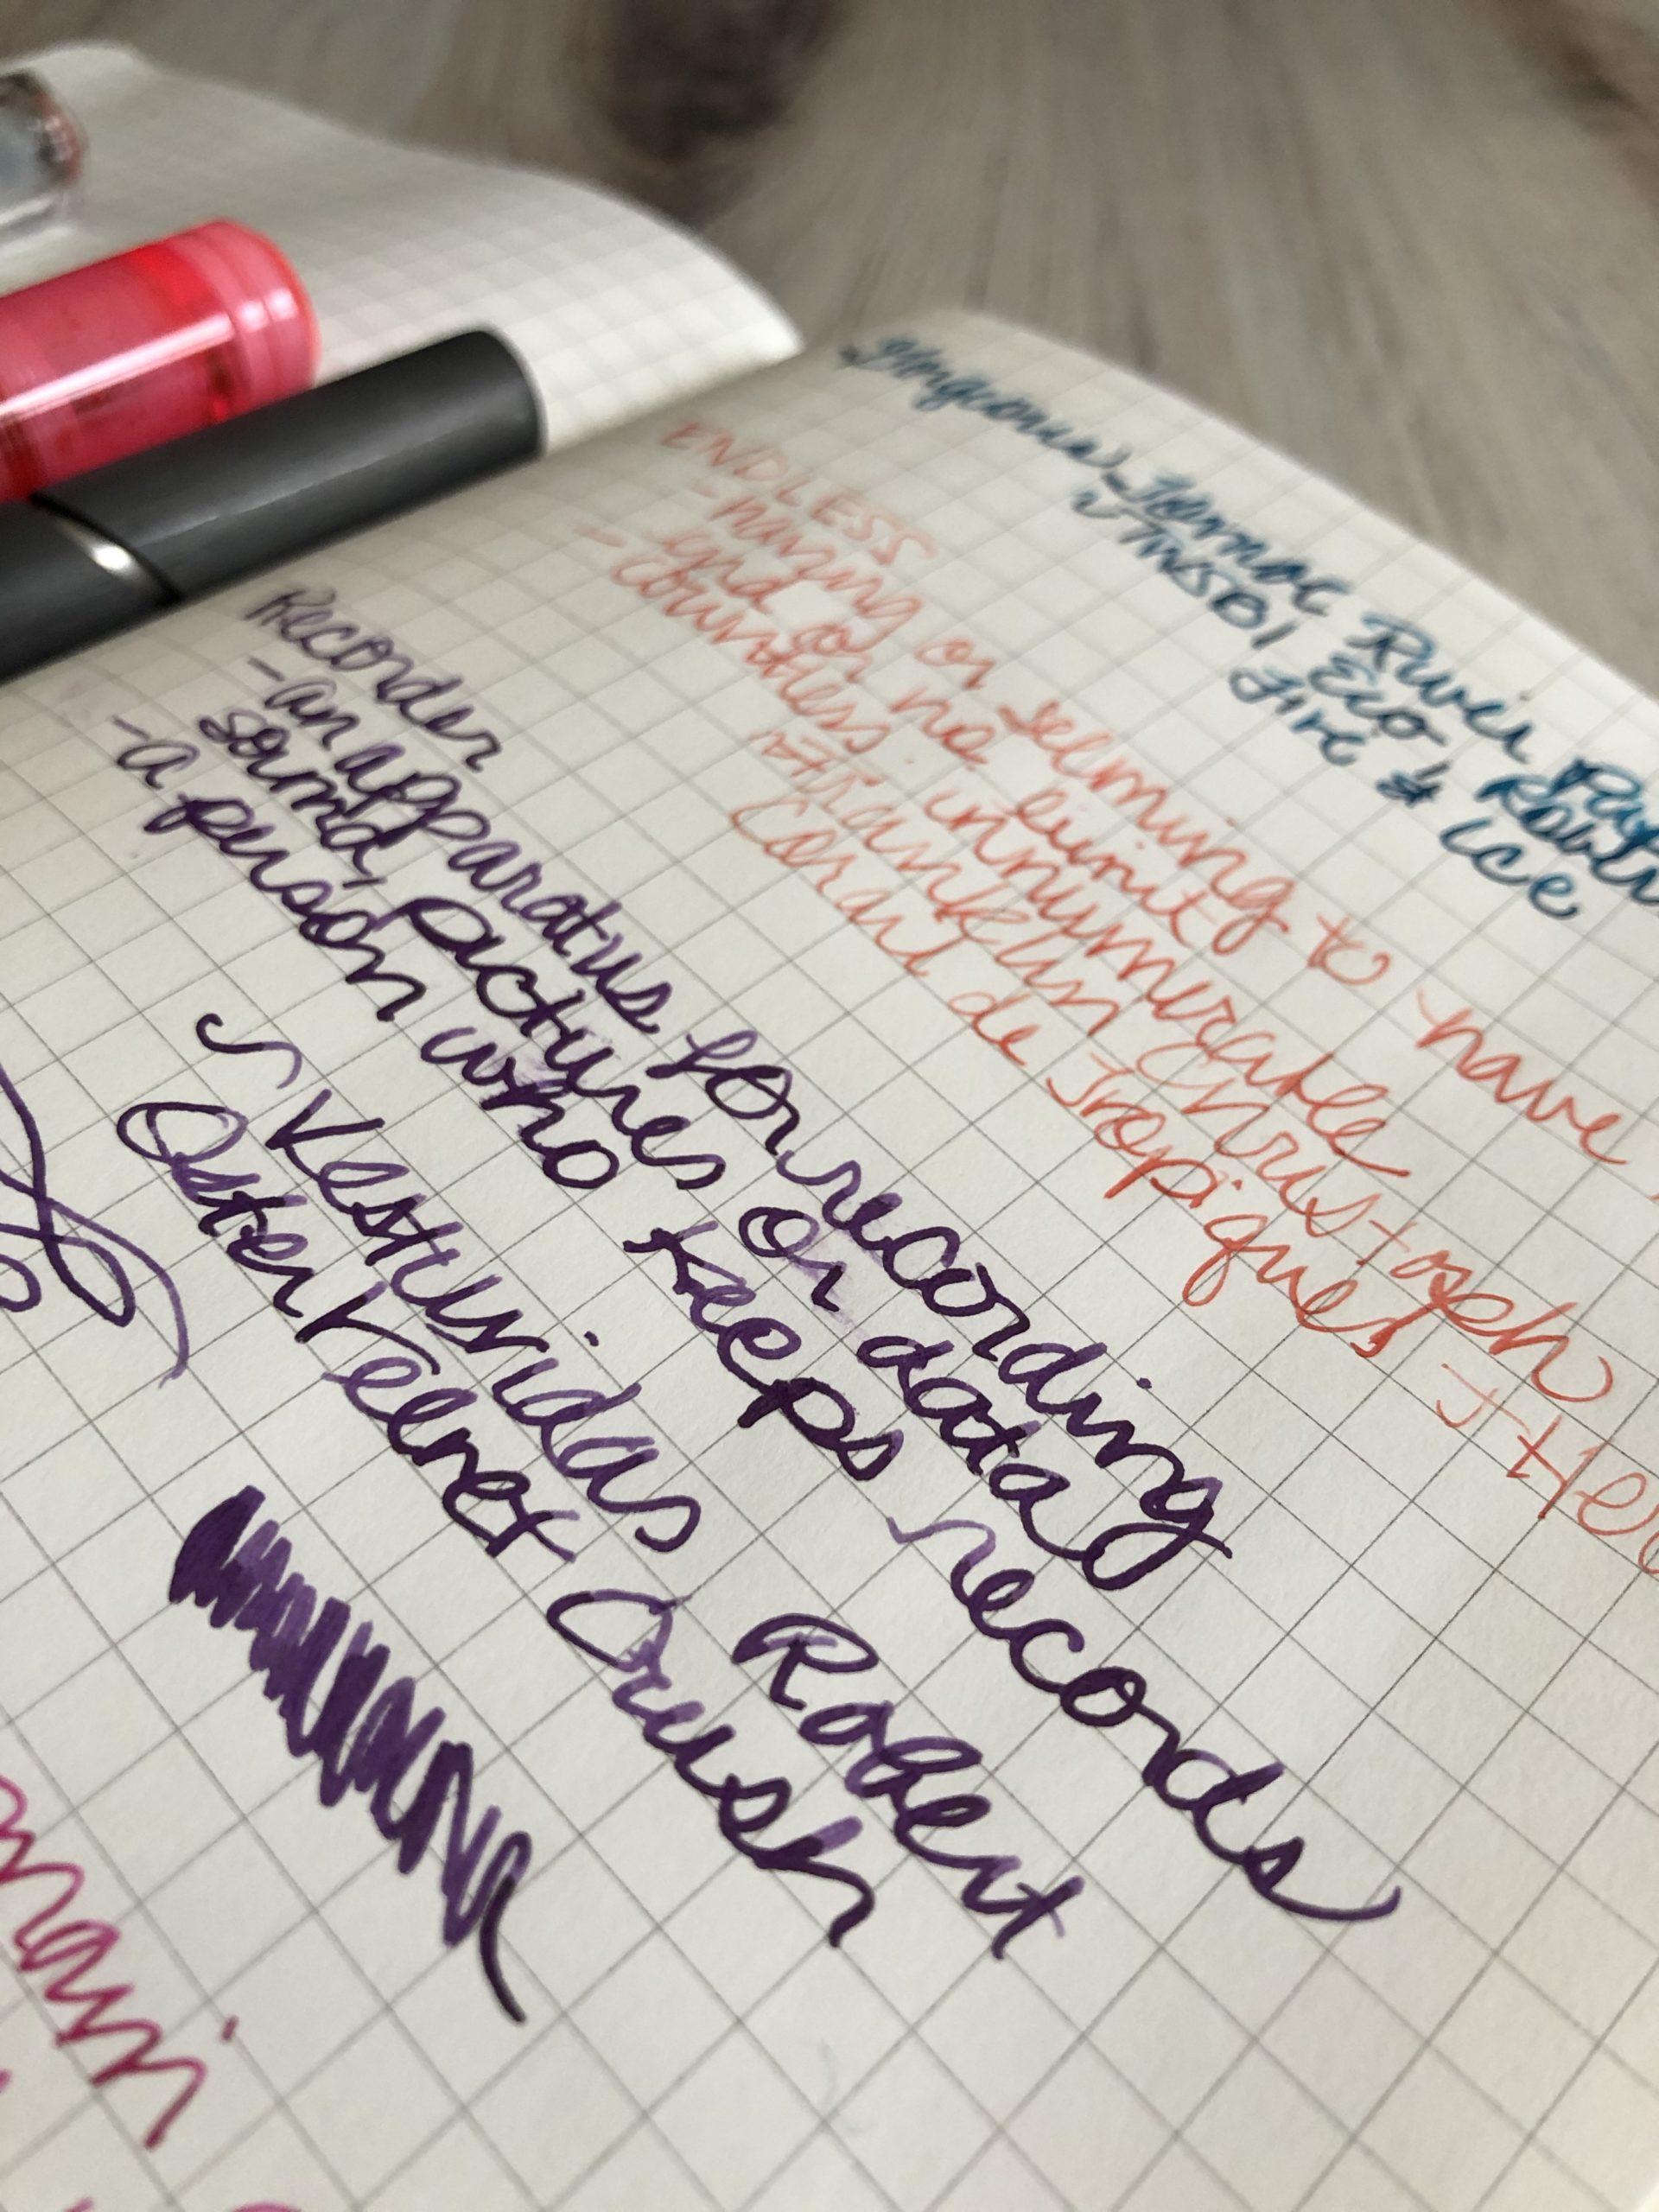 Tomoe River Pap
TWSBI Eco Robert
Fire & Ice
ENDLESS
- having or seeming to have
end or no limit
- countless innumerable
Franklin Christoph
Corail de Tropiques
Her
Recorder
- an apparatus for recording
sound, pictures or data
- a person who keeps records
Robert
Oster Velvet Crush